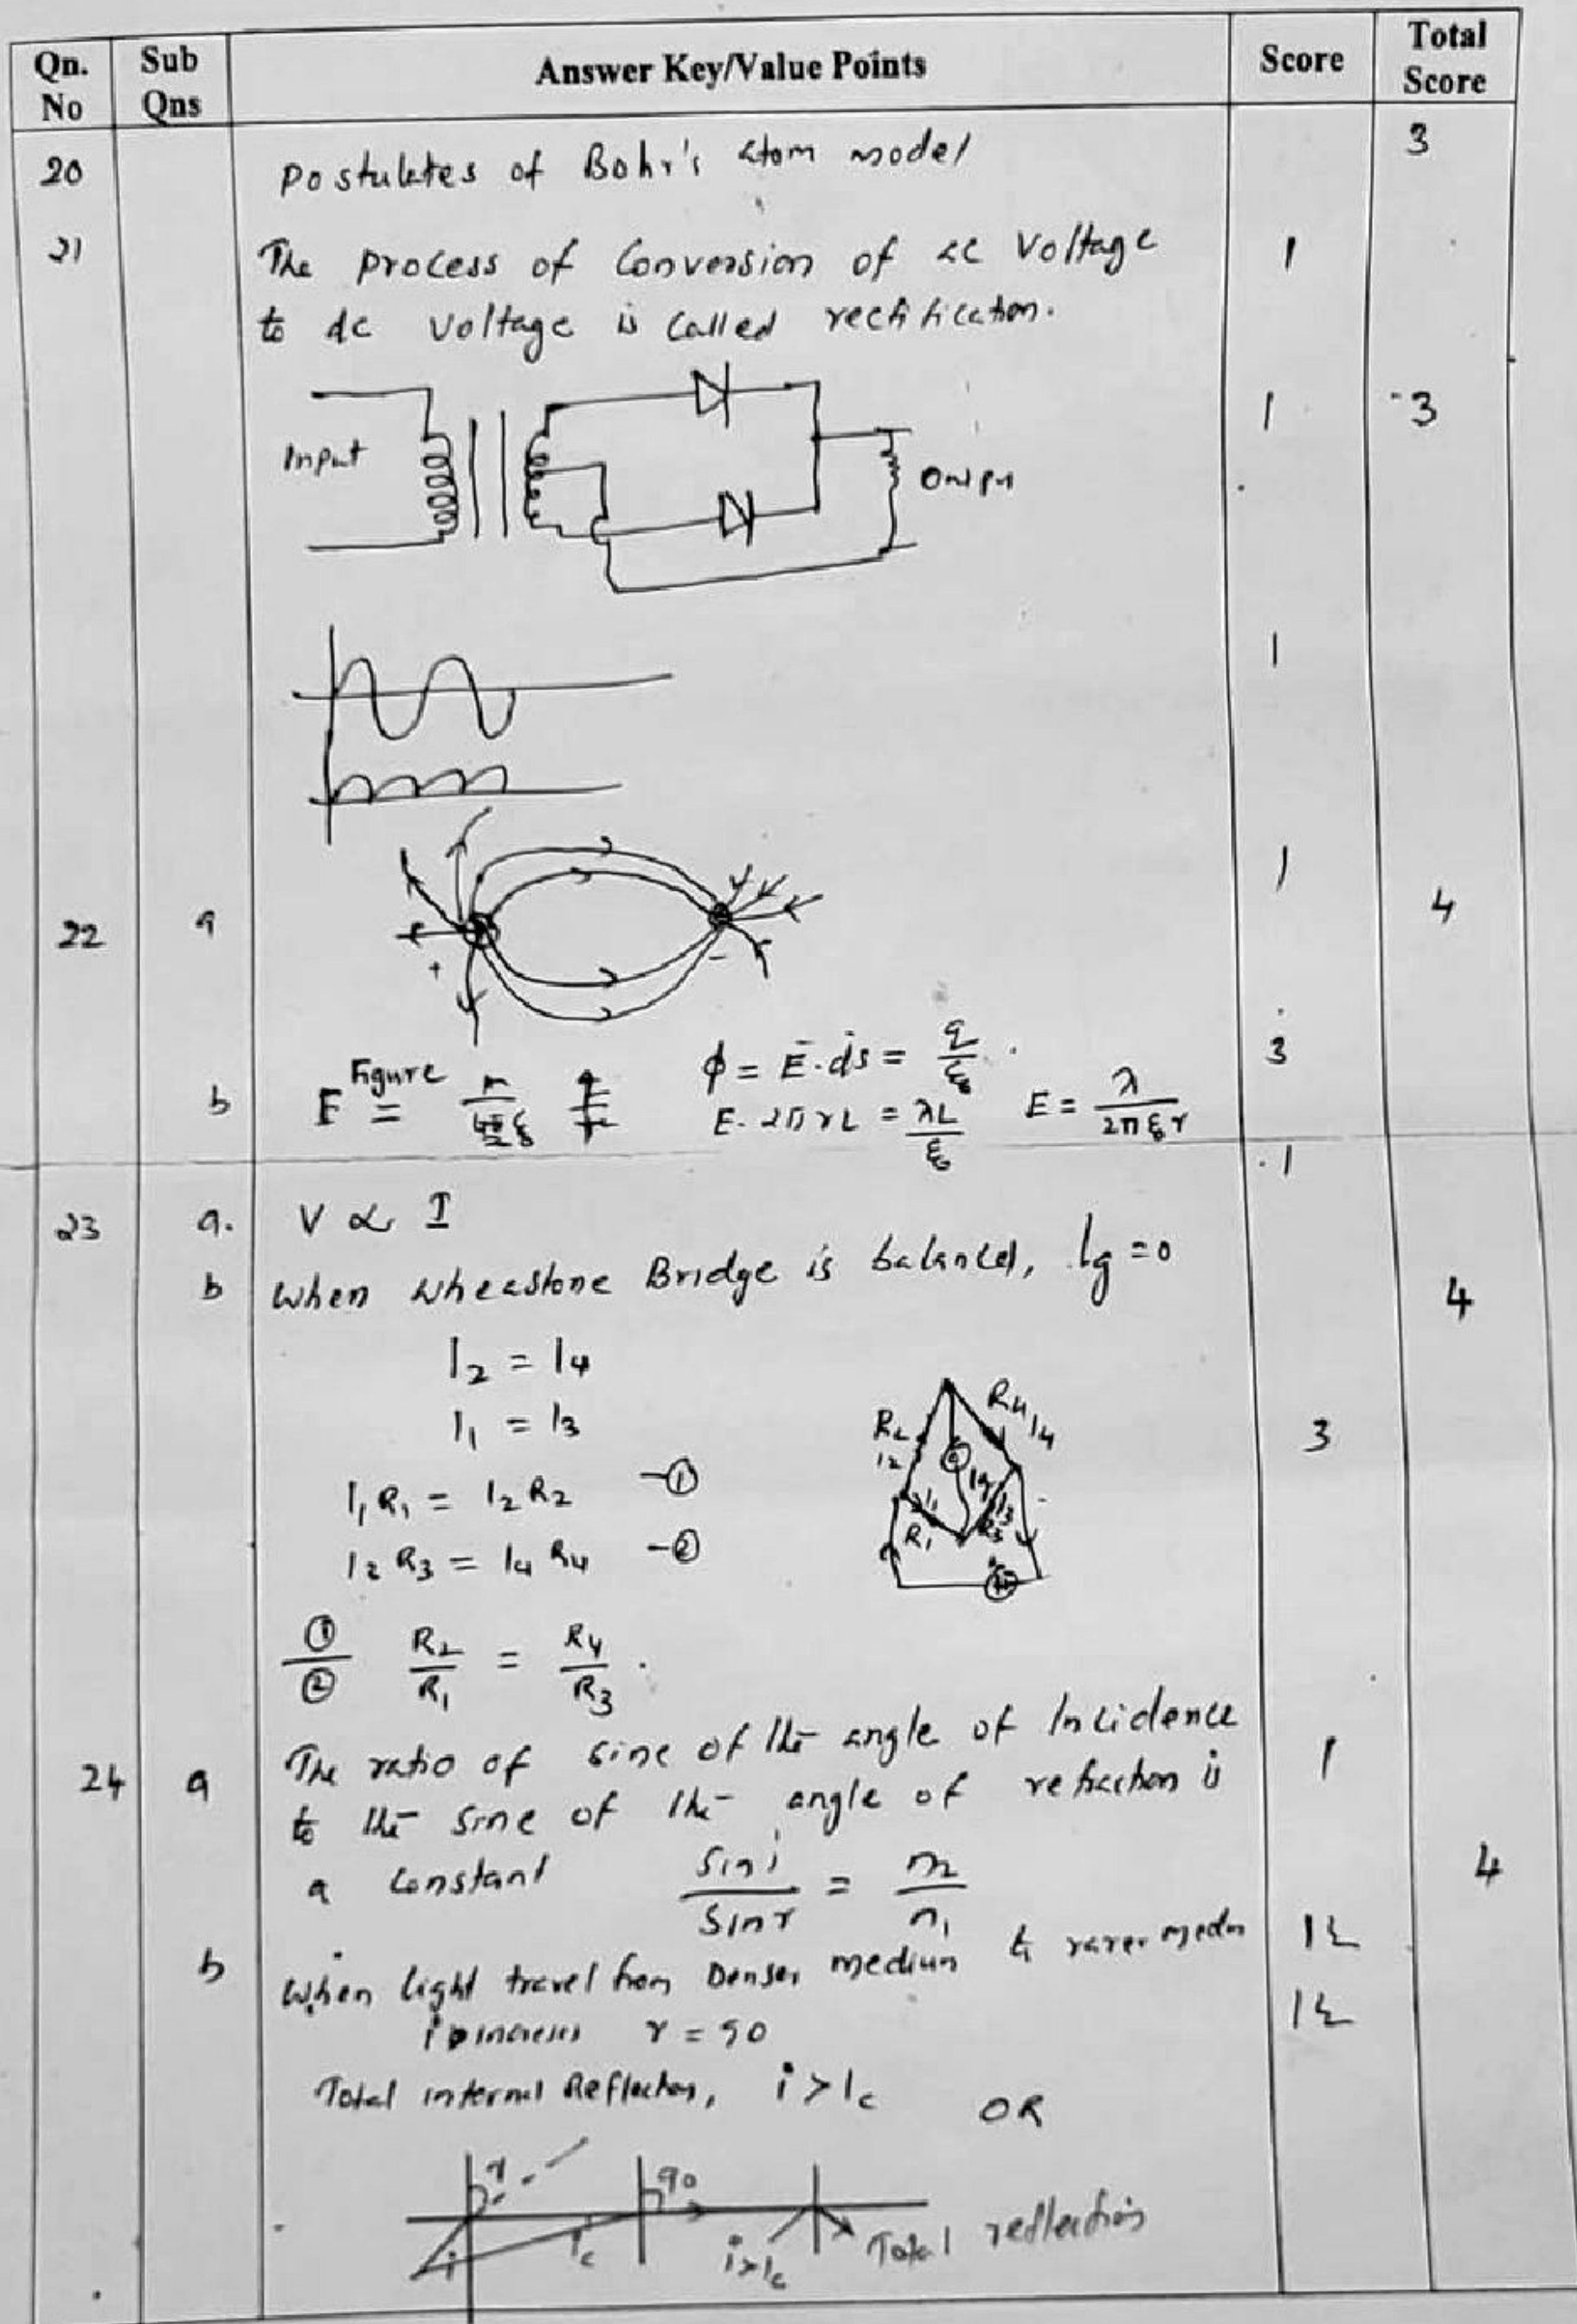 Qn. No | Sub Qns | Answer Key/Value Points | Score | Total Score
20 | Postulates of Bohr's atom model | 3
21 | The process of Conversion of ac Voltage | 1
to dc voltage is called rectification.
Input
1 | 3
1
22 | a | 1 | 4
+ -
b | Figure | ϕ = E.ds = q/ε₀ | 3
E. 2πrL = λL/ε₀ E = λ/2πε₀r
23 | a. | V ∝ I | 1
b | When Wheastone Bridge is balanced, Ig = 0 | 4
I2 = I4
I1 = I3 | 3
I1 R1 = I2 R2 - ①
I2 R3 = I4 R4 - ②
R2 I2 R4 I4
I1 Ig I3
R1 R3
①/② R2/R1 = R4/R3 .
24 | a | The ratio of sine of the angle of Incidence | 1
to the sine of the angle of refraction is
a constant sin i/sin r = n2/n1 | 4
b | When light travel from Denser medium to rarer | 1½
r = 90 | 1½
Total internal Reflection, i > Ic OR
r 90
i Ic i>Ic Total reflection